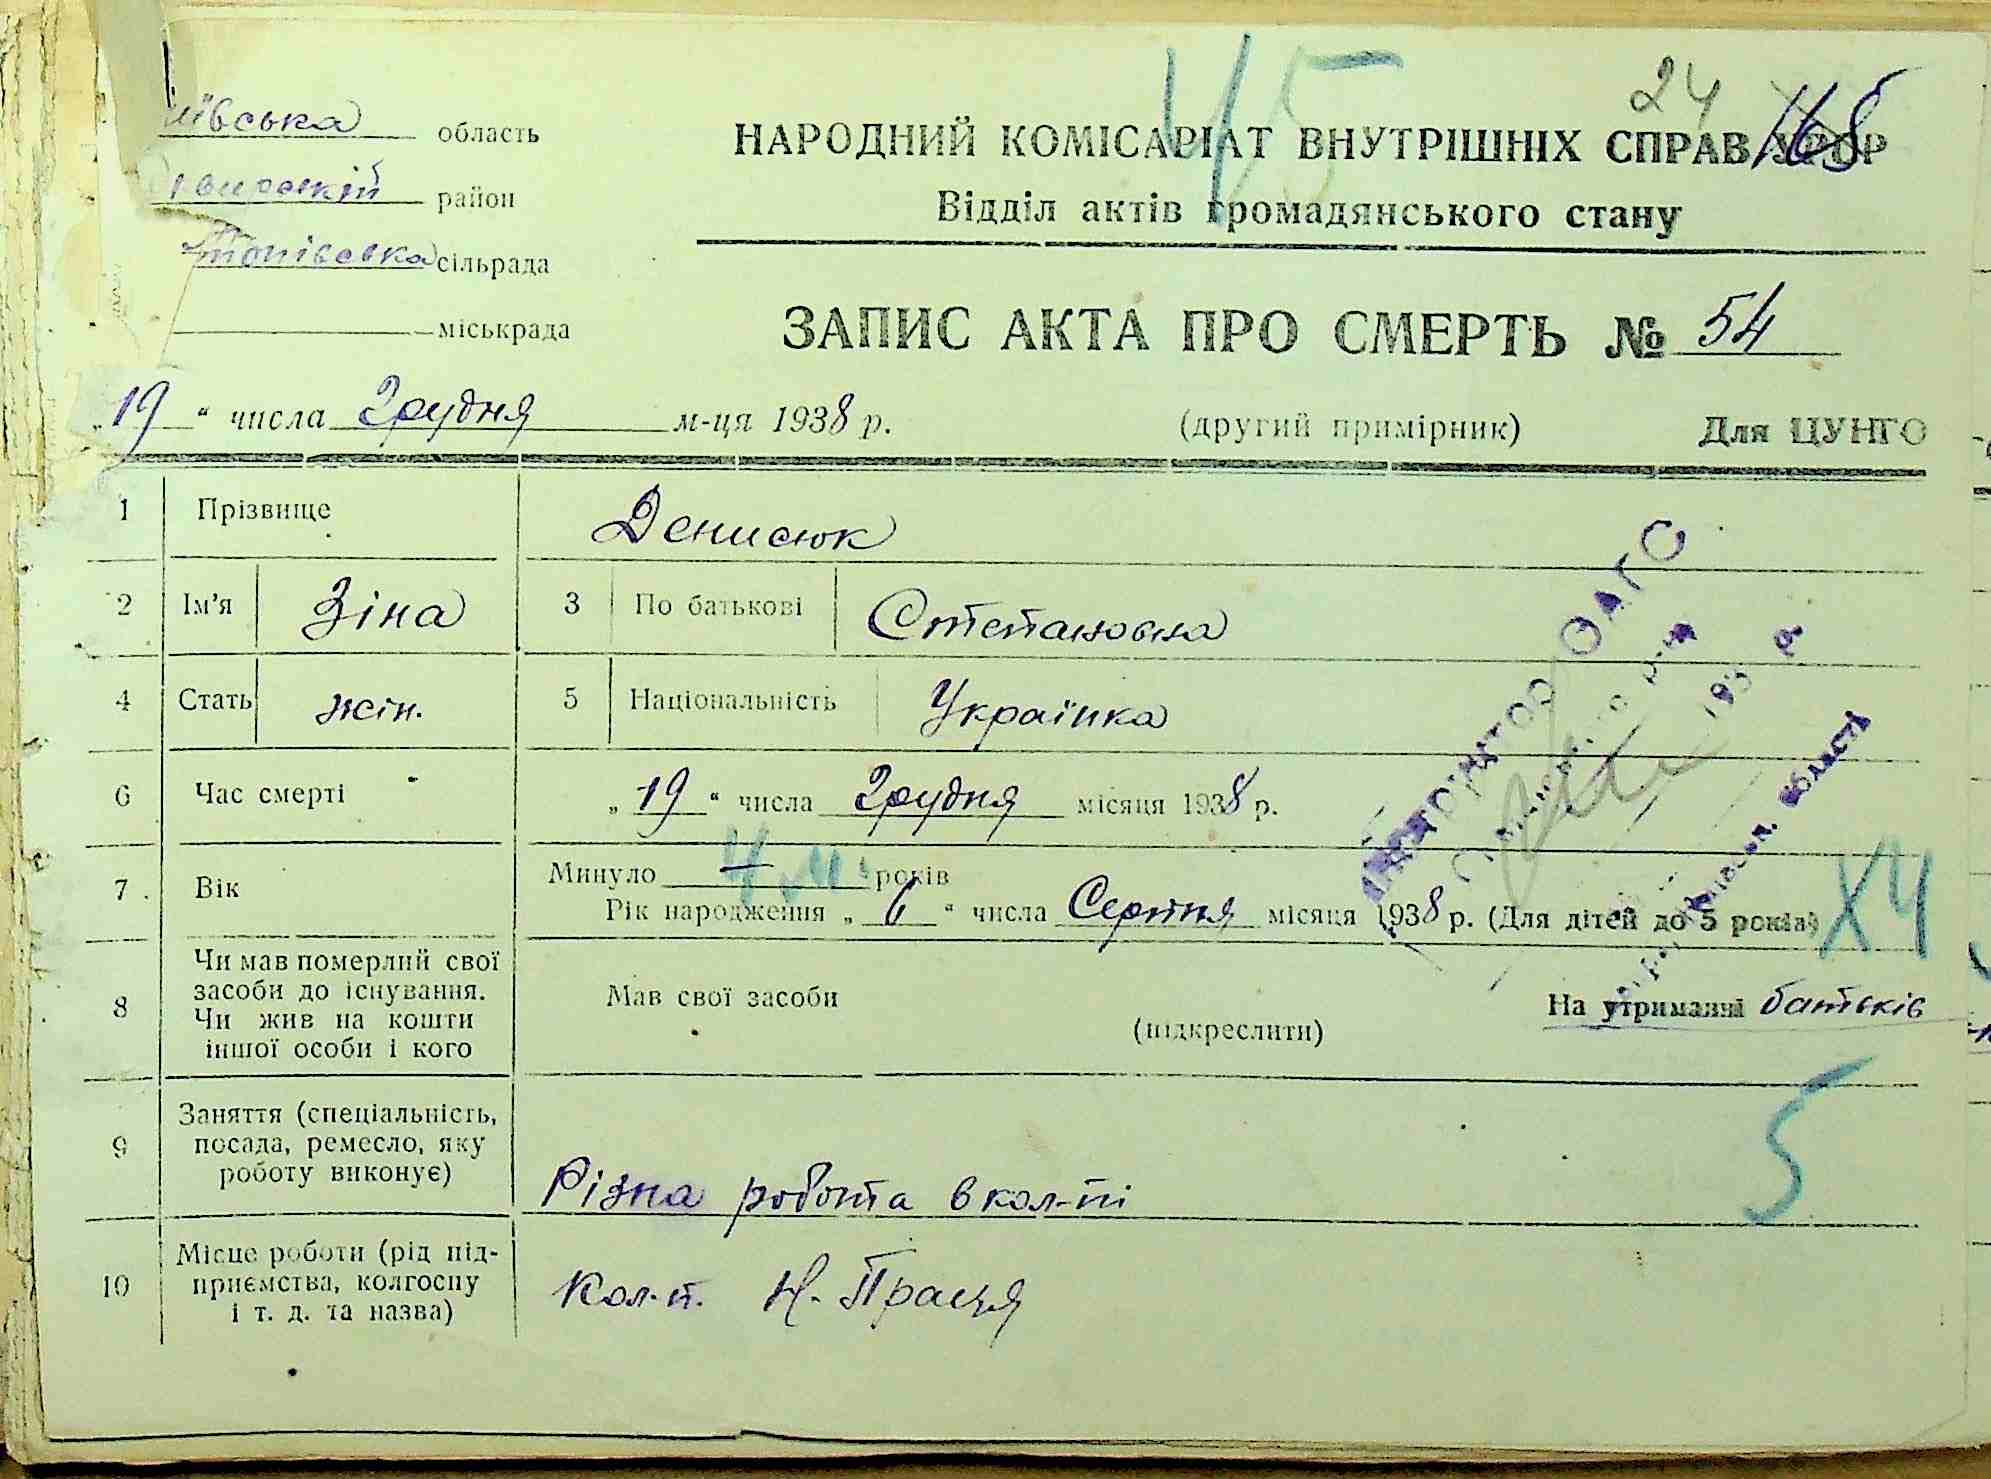 45
24
168
ївська область
район
сільрада
міськрада
НАРОДНИЙ КОМІСАРІАТ ВНУТРІШНІХ СПРАВ УРСР
Відділ актів громадянського стану
ЗАПИС АКТА ПРО СМЕРТЬ № 54
„19“ числа Грудня м-ця 1938 р.
(другий примірник) Для ЦУНГО
1 Прізвище Денисюк
2 Ім'я Зіна 3 По батькові Степановна
4 Стать жін. 5 Національність Українка
6 Час смерті „19“ числа Грудня місяця 1938 р.
7. Вік Минуло — років
4 м.
Рік народження „6“ числа Серпня місяця 1938 р. (Для дітей до 5 років)
Х4
8 Чи мав померлий свої засоби до існування. Чи жив на кошти іншої особи і кого
Мав свої засоби На утриманні батьків
(підкреслити)
5
9 Заняття (спеціальність, посада, ремесло, яку роботу виконує)
Різна робота в кол-пі
10 Місце роботи (рід підприємства, колгоспу і т. д. та назва)
Кол-п. Н. Праця
ОАГС
193 р.
області